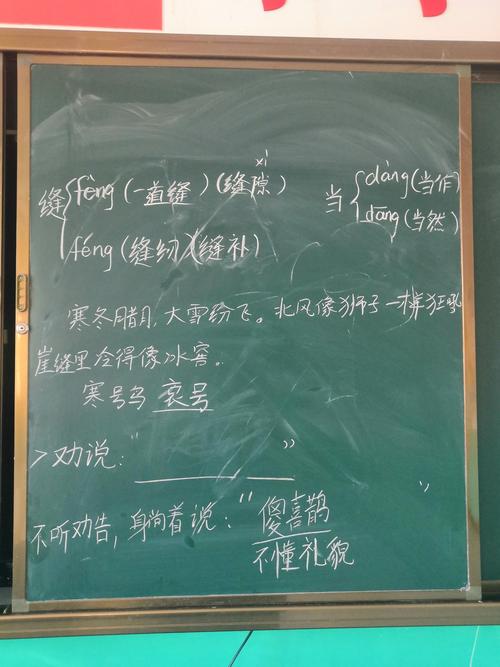 xì
缝 fèng (一道缝) (缝隙) 当 dàng (当作)
féng (缝纫) (缝补) dāng (当然)
寒冬腊月,大雪纷飞。北风像狮子一样狂吼
崖缝里冷得像冰窖。
寒号鸟 哀号
>劝说:“ ”
不听劝告,身尚着说:“傻喜鹊”
不懂礼貌